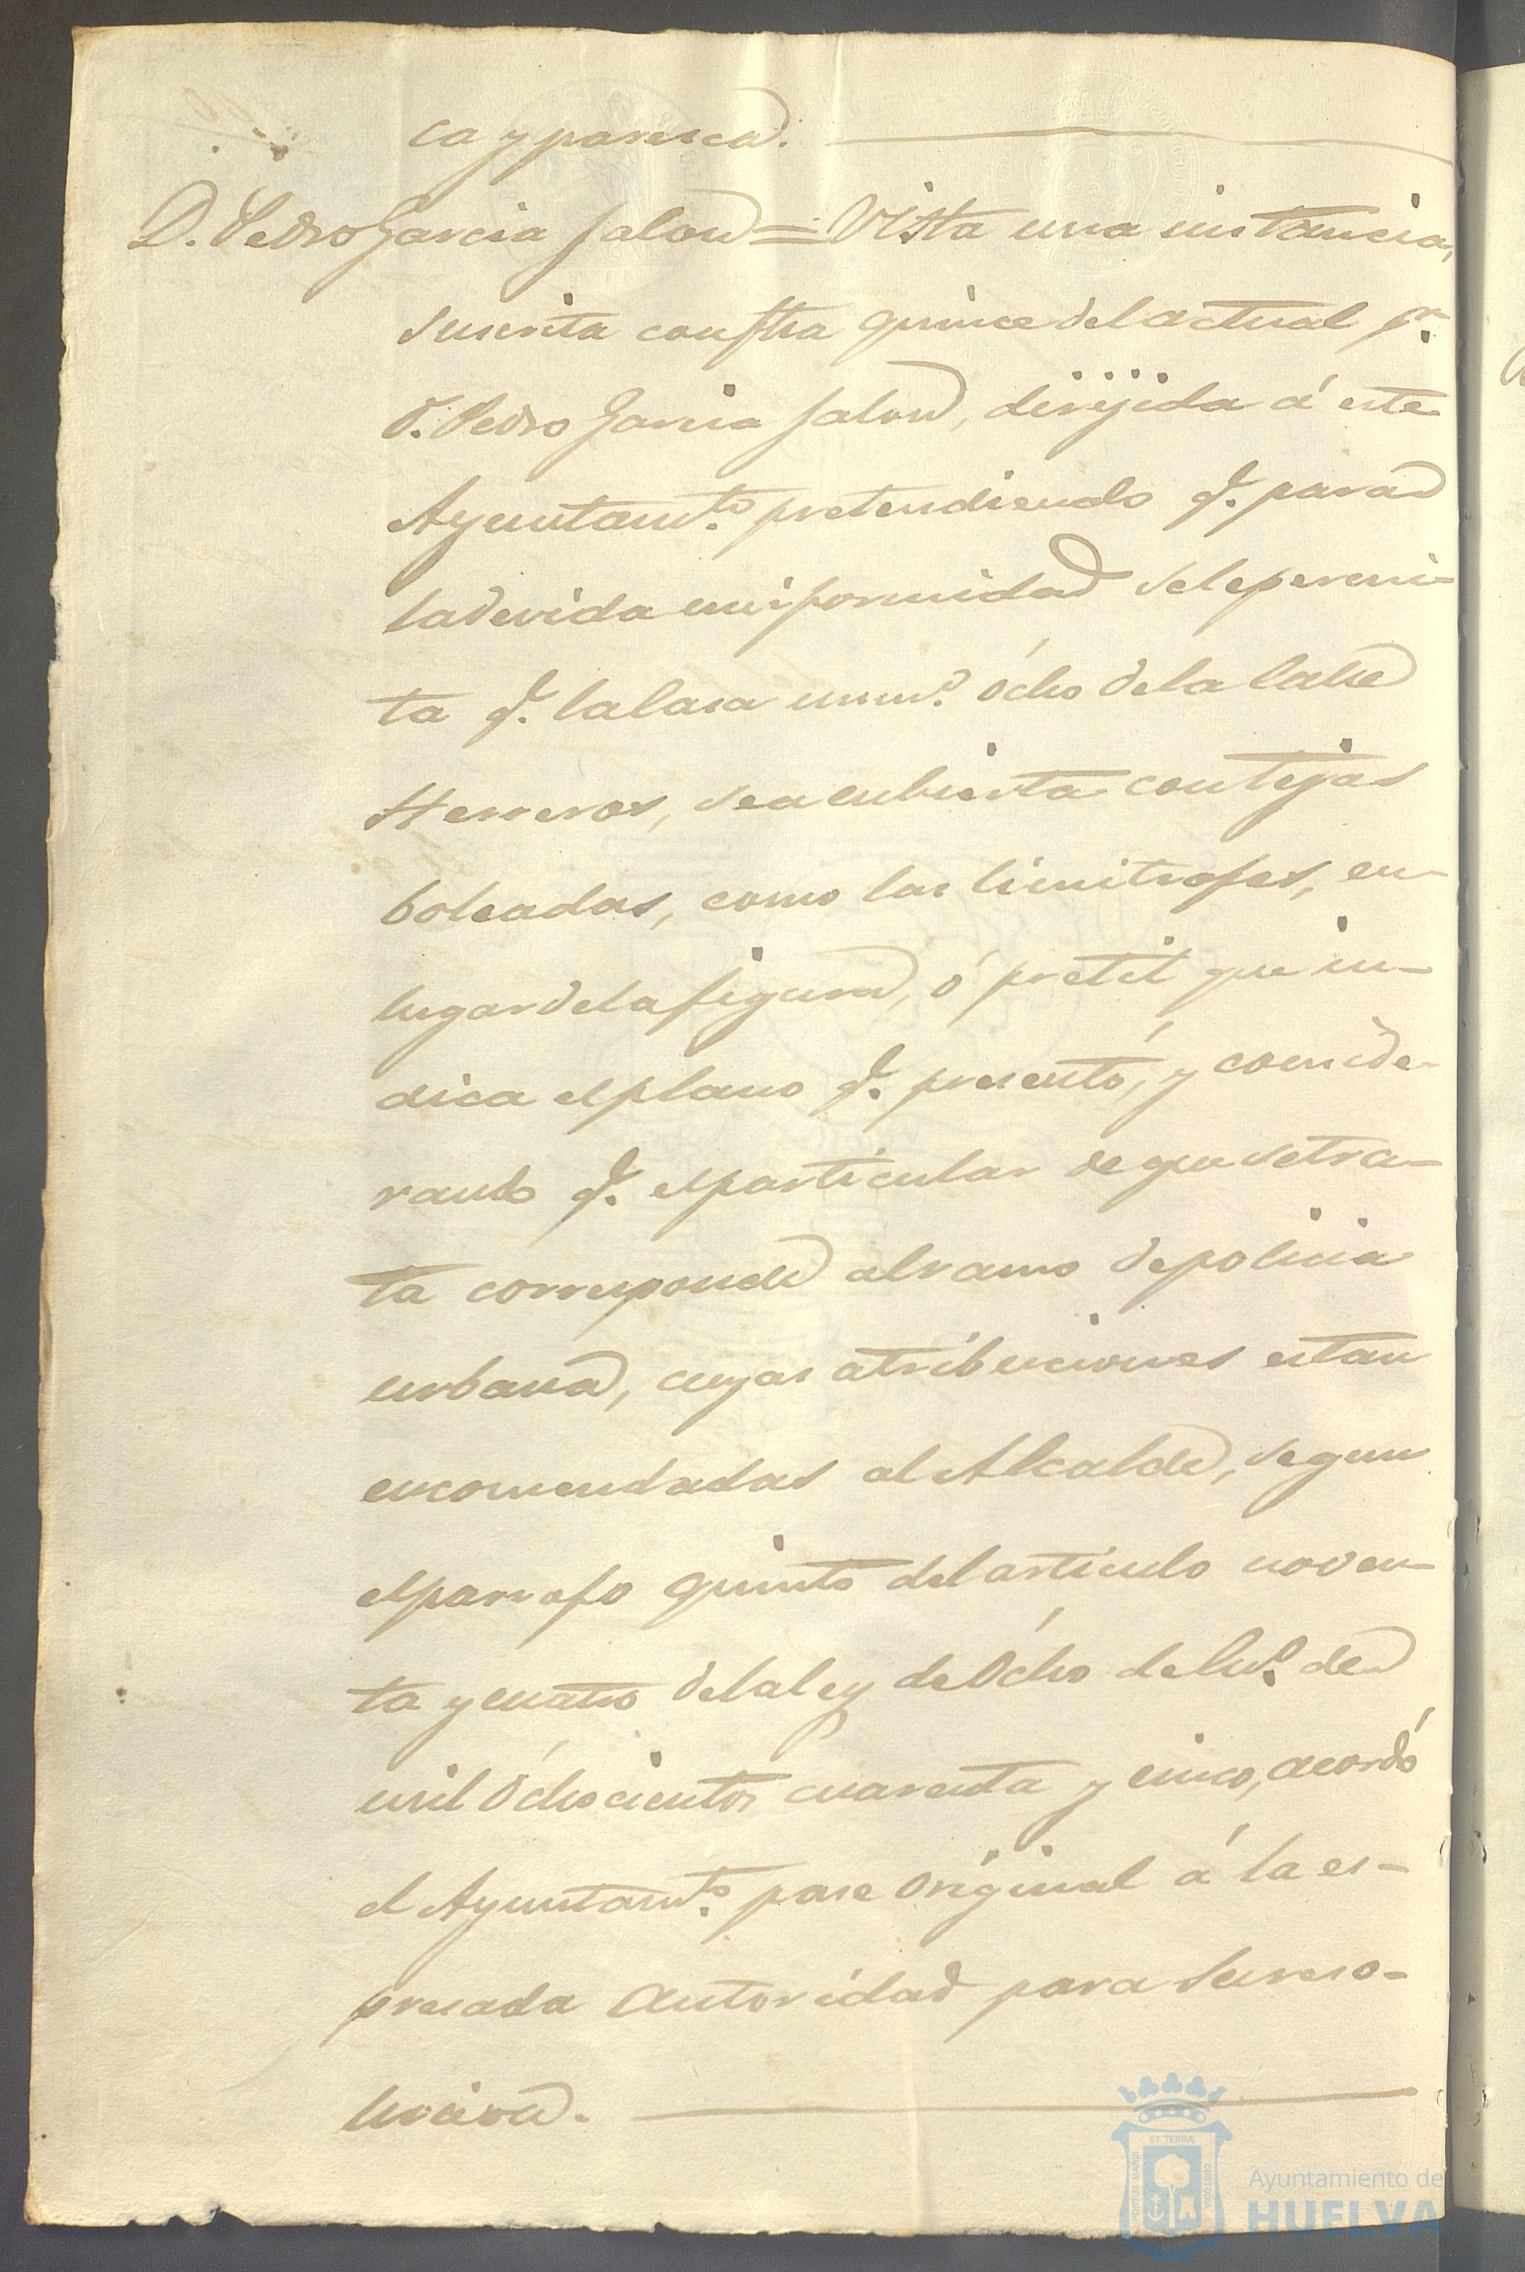 ca y paresca.
D. Pedro Garcia Jalon = Vista una instancia,
suscrita con fha quince del actual pr.
D. Pedro Garcia Jalon, dirijida á este
Ayuntamto. pretendiendo q. para
la devida uniformidad se le permi-
ta q. la casa numo. ócho de la calle
Herreros, sea cubierta con tejas
boleadas, como las limitrofes, en
lugar de la figura, ó pretil que in-
dica el plano q. presentó, y conside-
rando q. el particular de que se tra-
ta corresponde al ramo de policia
urbana, cuyas atribuciones estan
encomendadas al Alcalde, segun
el parrafo quinto del articulo noven-
ta y cuatro de la ley de ócho de Eno. de
mil óchocientos cuarenta y cinco, acordó
el Ayuntamto. pase original á la es-
presada autoridad para su reso-
lucion.
ET TERRAE
PORTUS MARIS
CUSTODIA
Ayuntamiento de
HUELVA